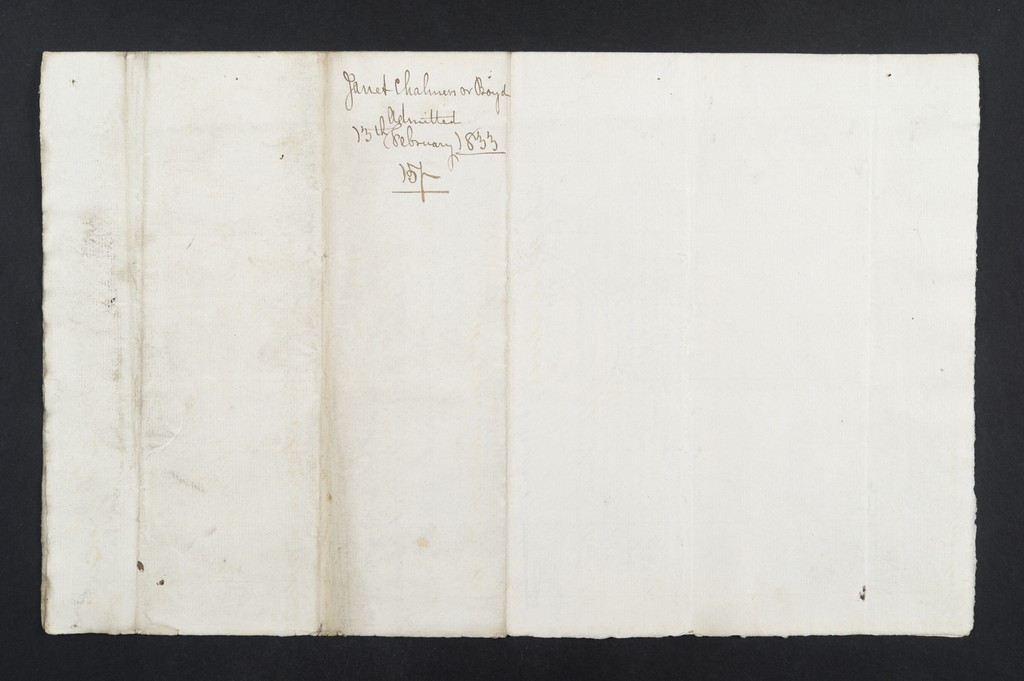 Janet Chalmers or Boyd
Admitted
13th February 1833
15/-